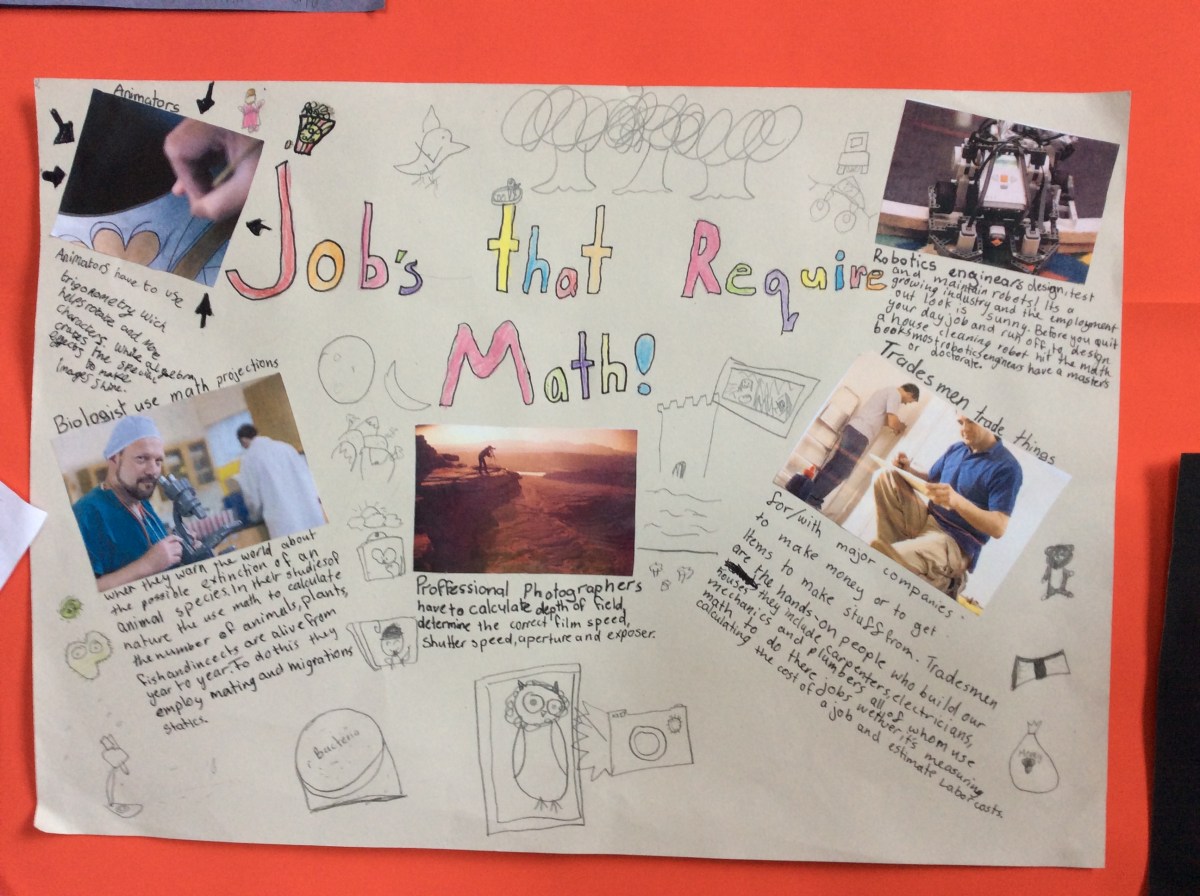 Animators
Job's that Require
Math!
Animators have to use
trigonometry wich
helps rotate and move
characters, while algebra
crates the special
effects to make
images shine.
Robotics enginears design, test
and maintain robots! Its a
growing industry and the employment
out look is sunny. Before you quit
your day job and run off to design
a house cleaning robot hit the math
books most robotics engineers have a master's
or doctorate.
Biologist use math projections
when they warn the world about
the possible extinction of an
animal species. In their studies of
nature the use math to calculate
the number of animals, plants,
fish and incects are alive from
year to year. To do this they
employ mating and migrations
statics.
Proffessional Photographers
have to calculate depth of field,
determine the correct film speed,
shutter speed, aperture and exposer.
Tradesmen trade things
for/with major companies
to make money or to get
Items to make stuff from. Tradesmen
are the hands-on people who build our
houses they include carpenters, electricians,
mechanics and plumbers all of whom use
math to do there jobs wether it's measuring
calculating the cost of a job and estimate Labor costs.
Bacteria
Money